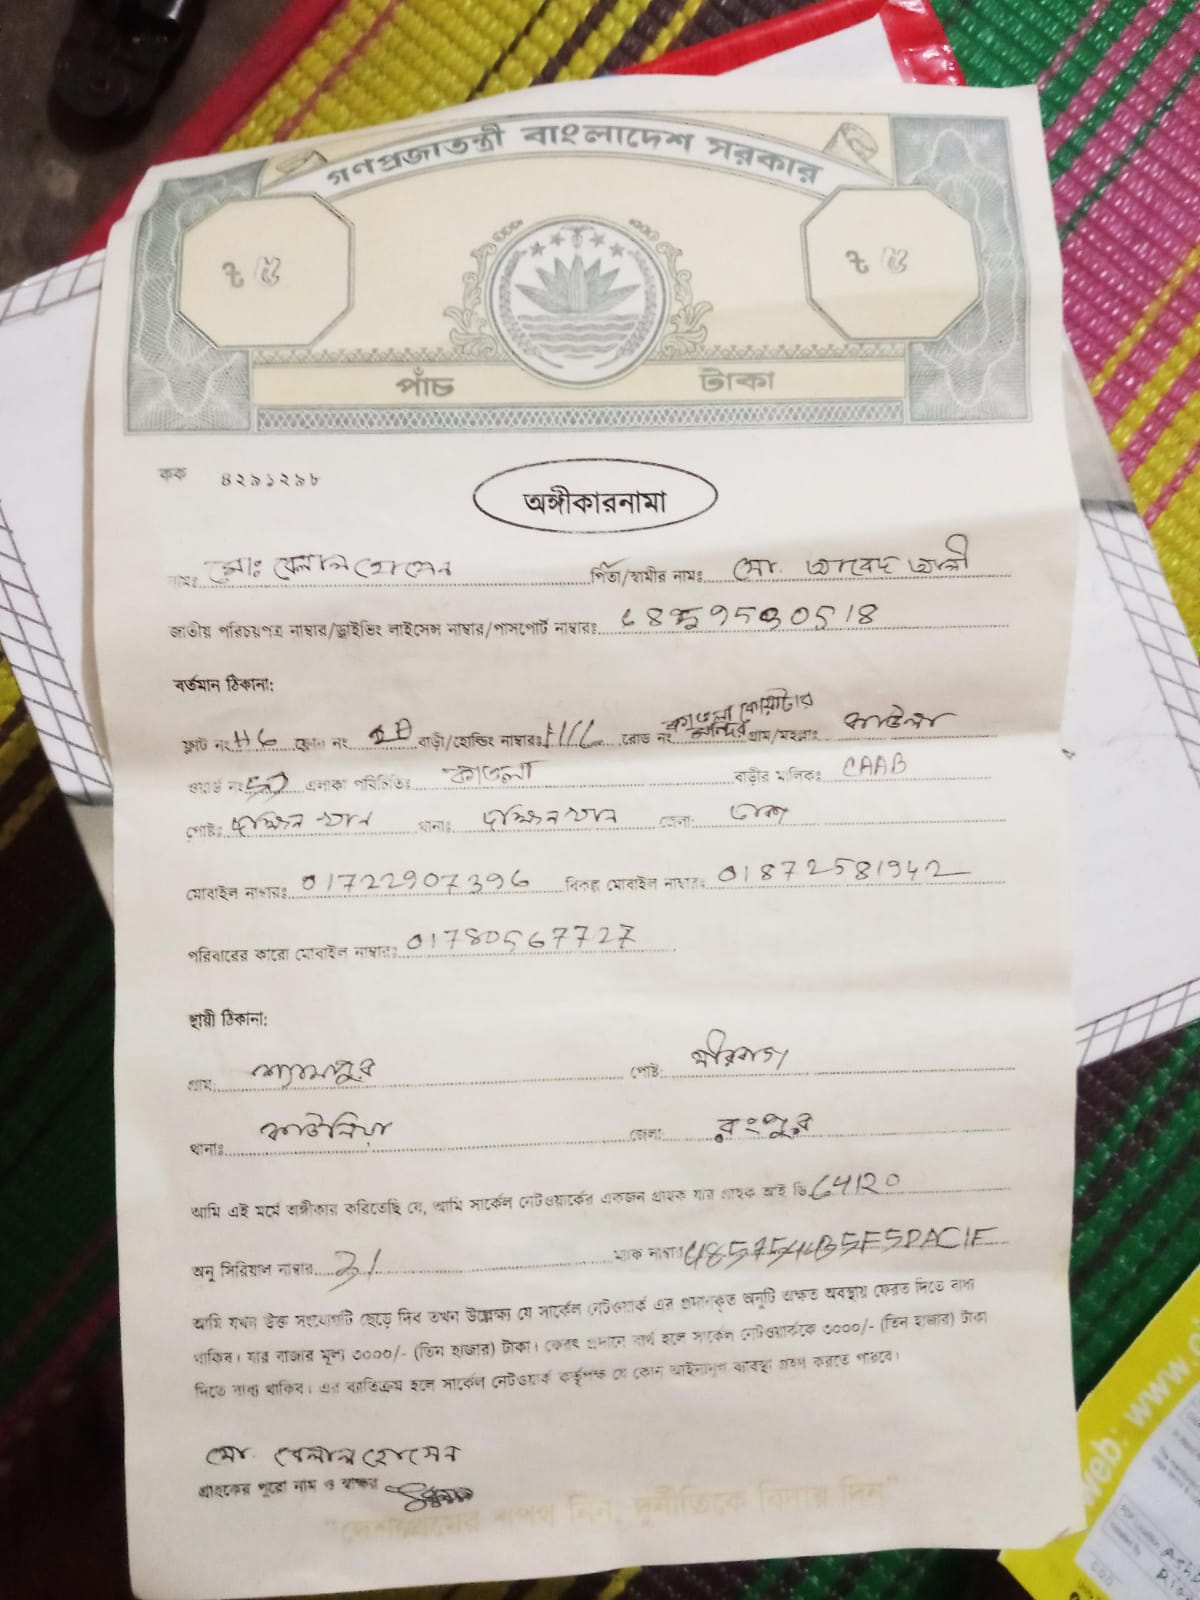 গণপ্রজাতন্ত্রী বাংলাদেশ সরকার
৳ ৫ ৳ ৫
পাঁচ টাকা
কক ৪২৯১২৯৮
অঙ্গীকারনামা
নামঃ মোঃ বেলাল হোসেন পিতা/স্বামীর নামঃ মো. আবেদ আলী
জাতীয় পরিচয়পত্র নাম্বার/ড্রাইভিং লাইসেন্স নাম্বার/পাসপোর্ট নাম্বারঃ
বর্তমান ঠিকানা:
ফ্লাট নং H6 ফ্লোর নং বাড়ী/হোল্ডিং নাম্বারঃ রোড নং কাওলা কোয়ার্টার মন্দির গ্রাম/মহল্লাঃ কাওলা
ওয়ার্ড নং এলাকা পরিচিতিঃ কাওলা বাড়ীর মালিকঃ CAAB
পোষ্টঃ দক্ষিন খান থানাঃ দক্ষিন খান জেলা: ঢাকা
মোবাইল নাম্বারঃ 01722907396 বিকল্প মোবাইল নাম্বারঃ 01872581942
পরিবারের কারো মোবাইল নাম্বারঃ 01780567727
স্থায়ী ঠিকানা:
গ্রাম: শ্যামপুর পোষ্ট: মীরবাগ
থানাঃ কাউনিয়া জেলা: রংপুর
আমি এই মর্মে অঙ্গীকার করিতেছি যে, আমি সার্কেল নেটওয়ার্কের একজন গ্রাহক যার গ্রাহক আই ডি C4120
অনু সিরিয়াল নাম্বার 31 ম্যাক নাম্বার
আমি যখন উক্ত সংযোগটি ছেড়ে দিব তখন উল্লেক্ষ্য যে সার্কেল নেটওয়ার্ক এর প্রদানকৃত অনুটি অক্ষত অবস্থায় ফেরত দিতে বাধ্য
থাকিব। যার বাজার মূল্য ৩০০০/- (তিন হাজার) টাকা। ফেরৎ প্রদানে ব্যর্থ হলে সার্কেল নেটওয়ার্ককে ৩০০০/- (তিন হাজার) টাকা
দিতে বাধ্য থাকিব। এর ব্যতিক্রম হলে সার্কেল নেটওয়ার্ক কর্তৃপক্ষ যে কোন আইনানুগ ব্যবস্থা গ্রহণ করতে পারবে।
মো. বেলাল হোসেন
গ্রাহকের পুরো নাম ও স্বাক্ষর
"দেশপ্রেমের শপথ নিন, দুর্নীতিকে বিদায় দিন"
web: www.